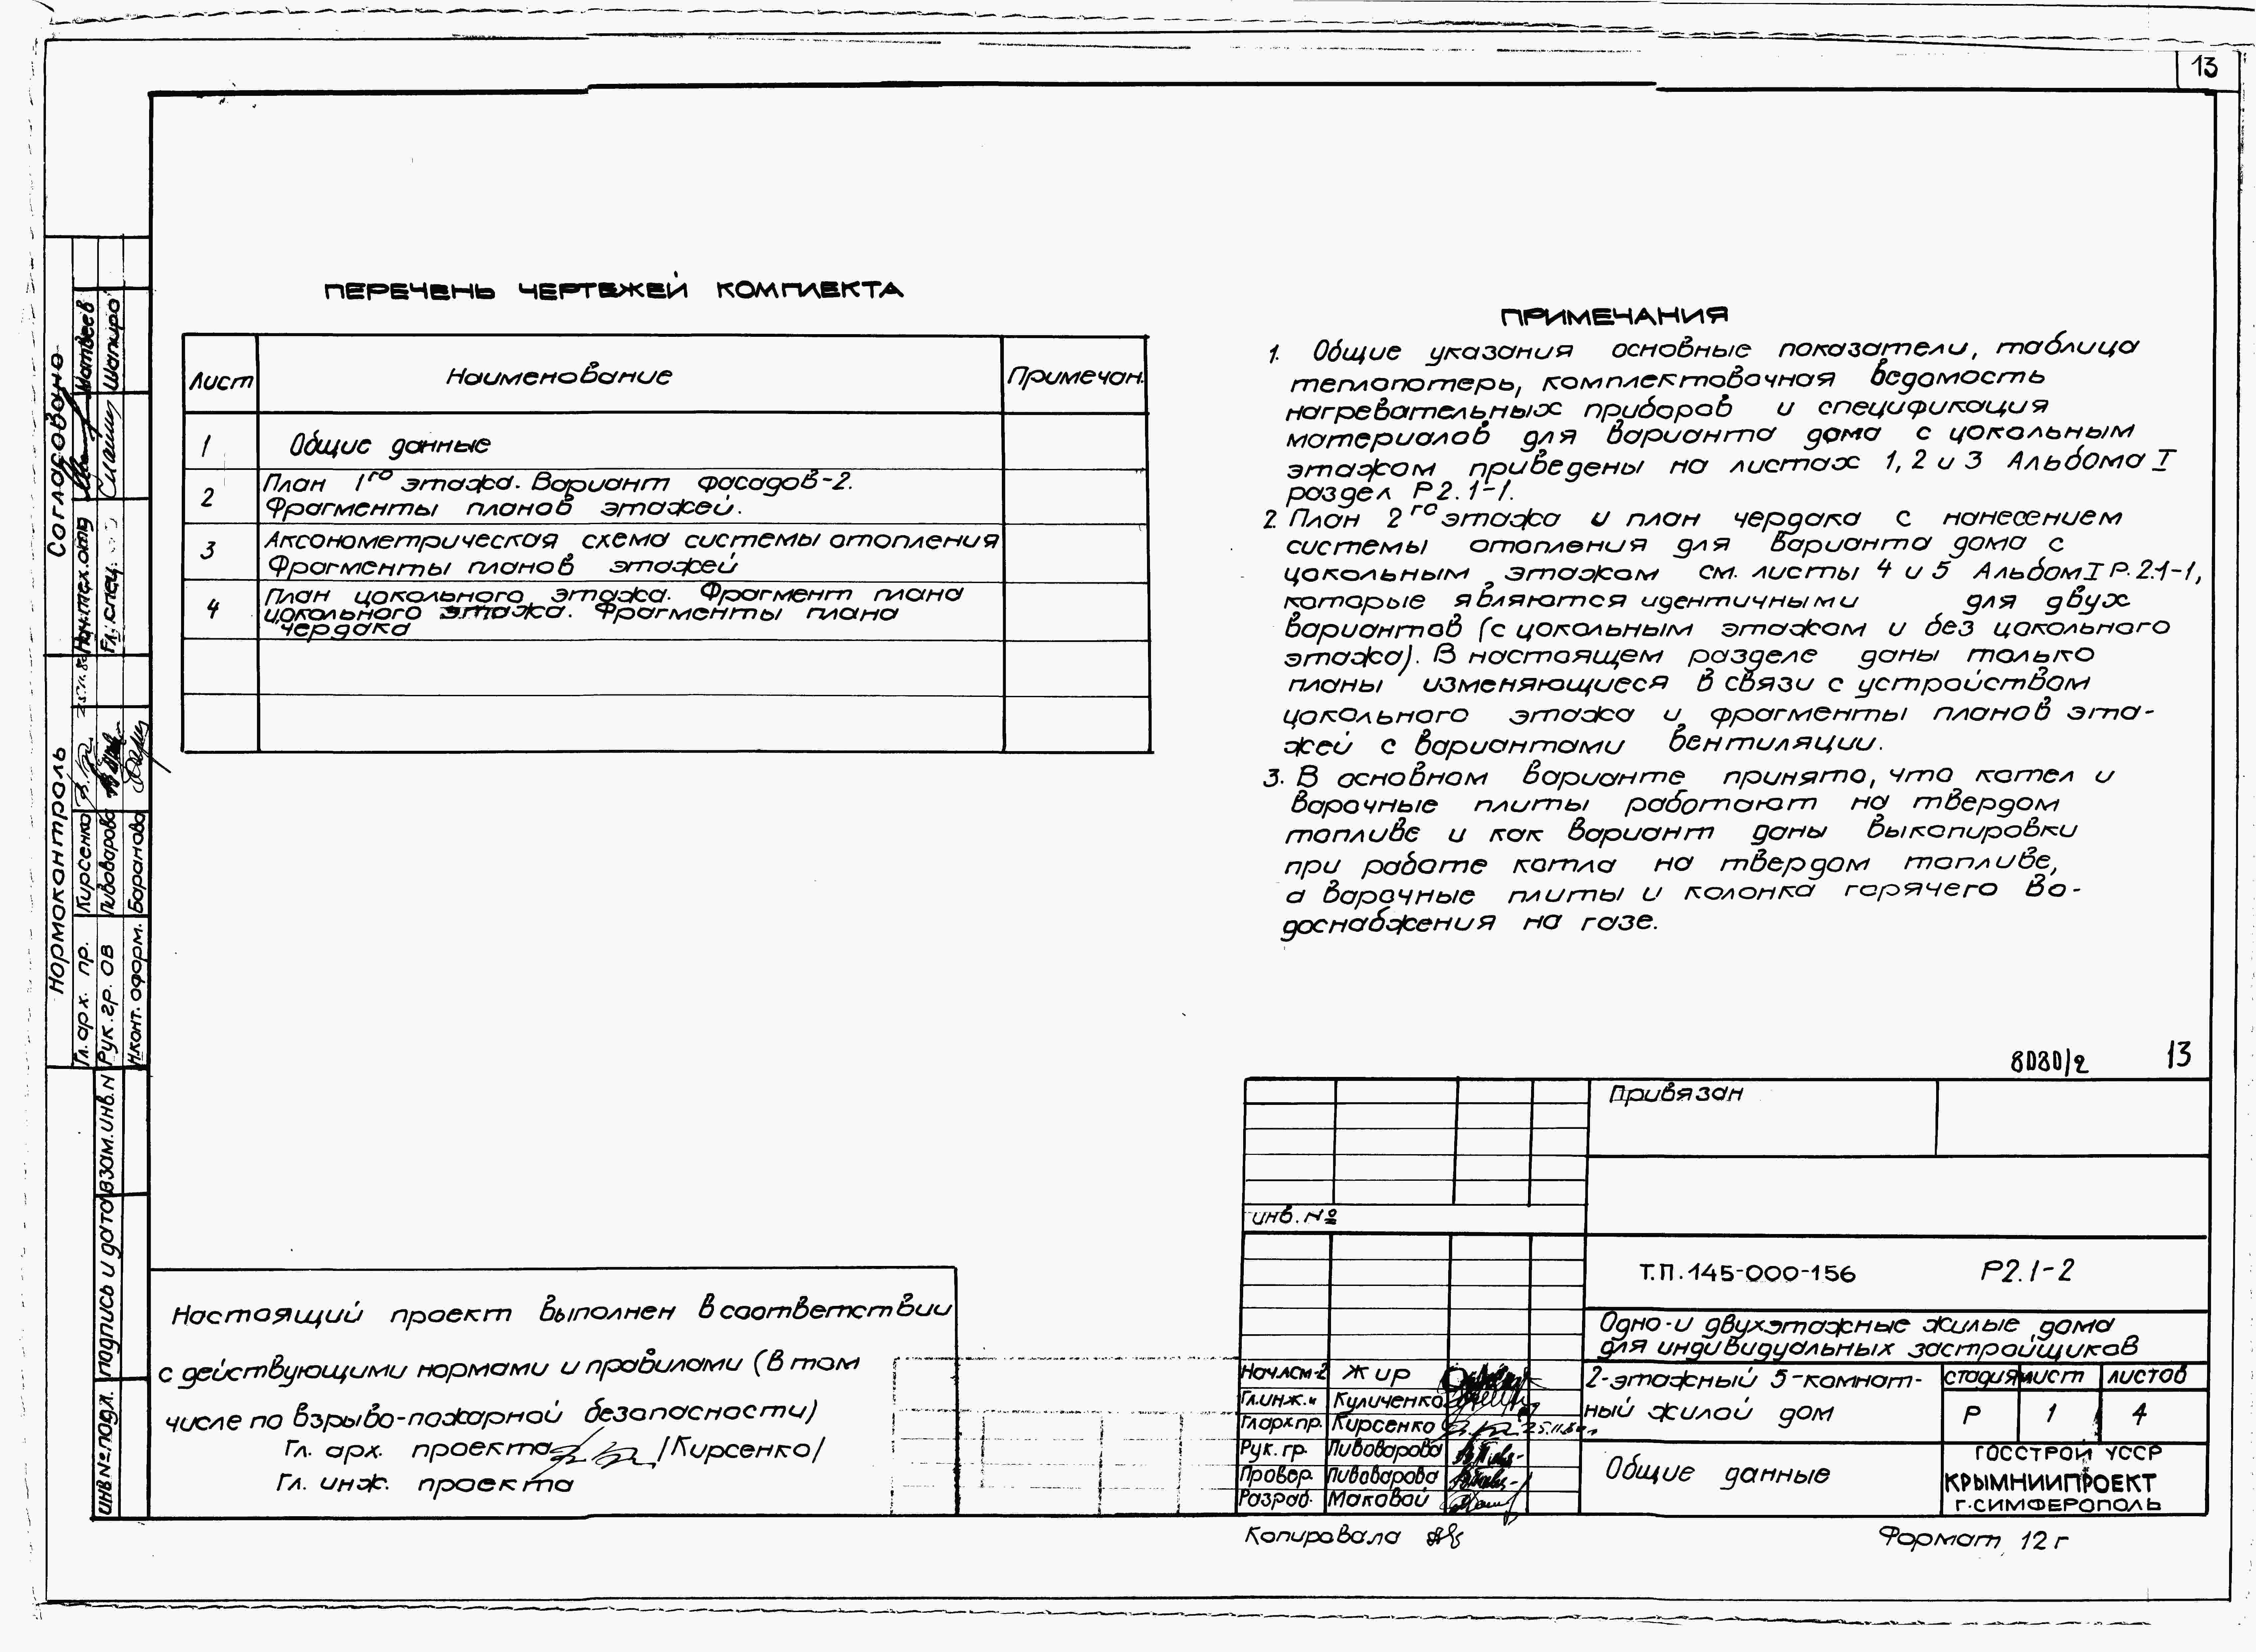 13
ПЕРЕЧЕНЬ ЧЕРТЕЖЕЙ КОМПЛЕКТА
Лист
Наименование
Примечан.
1
Общие данные
2
План 1го этажа. Вариант фасадов-2.
Фрагменты планов этажей.
3
Аксонометрическая схема системы отопления
Фрагменты планов этажей
4
План цокольного этажа. Фрагмент плана
цокольного этажа. Фрагменты плана
чердака
ПРИМЕЧАНИЯ
1. Общие указания основные показатели, таблица
теплопотерь, комплектовочная ведомость
нагревательных приборов и спецификация
материалов для варианта дома с цокольным
этажом приведены на листах 1, 2 и 3 Альбома I
раздел Р2.1-1.
2. План 2го этажа и план чердака с нанесением
системы отопления для варианта дома с
цокольным этажом см. листы 4 и 5 Альбом I Р.2.1-1,
которые являются идентичными для двух
вариантов (с цокольным этажом и без цокольного
этажа). В настоящем разделе даны только
планы изменяющиеся в связи с устройством
цокольного этажа и фрагменты планов эта-
жей с вариантами вентиляции.
3. В основном варианте принято, что котел и
варочные плиты работают на твердом
топливе и как вариант даны выкопировки
при работе котла на твердом топливе,
а варочные плиты и колонка горячего во-
доснабжения на газе.
8080/2
13
Привязан
инв. №
Т.П. 145-000-156
Р2.1-2
Одно- и двухэтажные жилые дома
для индивидуальных застройщиков
Нач.АСМ-2 Жир
Гл.инж.и Куличенко
Гл.арх.пр. Кирсенко
Рук. гр. Пивоварова
Провер. Пивоварова
Разраб. Маковой
2-этажный 5-комнат-
ный жилой дом
стадия лист листов
Р 1 4
Общие данные
ГОССТРОЙ УССР
КРЫМНИИПРОЕКТ
г. СИМФЕРОПОЛЬ
Копировала
Формат 12г
Настоящий проект выполнен в соответствии
с действующими нормами и правилами (в том
числе по взрыво-пожарной безопасности)
Гл. арх. проекта /Кирсенко/
Гл. инж. проекта
Согласовано
Нач.тех.отд Матвеев
Гл. спец. Шапиро
Нормоконтроль
Гл. арх. пр. Кирсенко
Рук. гр. ОВ Пивоварова
Н.конт. оформ. Баранова
ВЗАМ.ИНВ.N
подпись и дата
ИНВ№подл.